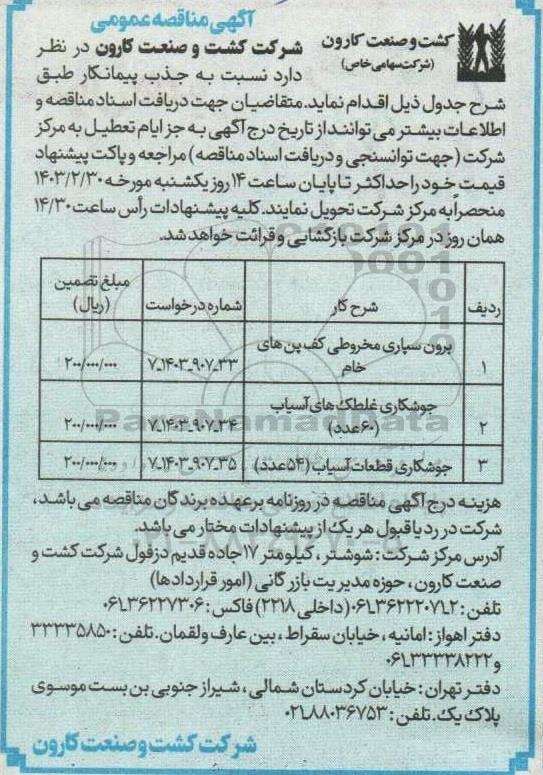 آگهی مناقصه عمومی
کشت و صنعت کارون
(شرکت سهامی خاص)
شرکت کشت و صنعت کارون در نظر
دارد نسبت به جذب پیمانکار طبق
شرح جدول ذیل اقدام نماید. متقاضیان جهت دریافت اسناد مناقصه و
اطلاعات بیشتر می توانند از تاریخ درج آگهی به جز ایام تعطیل به مرکز
شرکت (جهت توانسنجی و دریافت اسناد مناقصه) مراجعه و پاکت پیشنهاد
قیمت خود را حداکثر تا پایان ساعت ۱۴ روز یکشنبه مورخه ۱۴۰۳/۲/۳۰
منحصراً به مرکز شرکت تحویل نمایند. کلیه پیشنهادات رأس ساعت ۱۴/۳۰
همان روز در مرکز شرکت بازگشایی و قرائت خواهد شد.
ردیف شرح کار شماره درخواست مبلغ تضمین (ریال)
۱ برون سپاری مخروطی کف پن های خام ۷_۱۴۰۳_۹۰۷_۳۳ ۲۰۰/۰۰۰/۰۰۰
۲ جوشکاری غلطک های آسیاب (۶۰ عدد) ۷_۱۴۰۳_۹۰۷_۳۴ ۲۰۰/۰۰۰/۰۰۰
۳ جوشکاری قطعات آسیاب (۵۴ عدد) ۷_۱۴۰۳_۹۰۷_۳۵ ۲۰۰/۰۰۰/۰۰۰
ParsNamadData
هزینه درج آگهی مناقصه در روزنامه بر عهده برندگان مناقصه می باشد،
شرکت در رد یا قبول هر یک از پیشنهادات مختار می باشد.
آدرس مرکز شرکت : شوشتر ، کیلومتر ۱۷ جاده قدیم دزفول شرکت کشت و
صنعت کارون ، حوزه مدیریت بازرگانی (امور قراردادها)
تلفن : ۲_۰۶۱۳۶۲۲۲۰۷۱ (داخلی ۲۲۱۸) فاکس : ۰۶۱۳۶۲۲۷۳۰۶
دفتر اهواز : امانیه ، خیابان سقراط ، بین عارف و لقمان. تلفن : ۳۳۳۳۵۸۵۰
و ۰۶۱۳۳۳۳۸۲۲۲
دفتر تهران : خیابان کردستان شمالی ، شیراز جنوبی بن بست موسوی
پلاک یک. تلفن : ۰۲۱۸۸۰۳۶۷۵۳
شرکت کشت و صنعت کارون